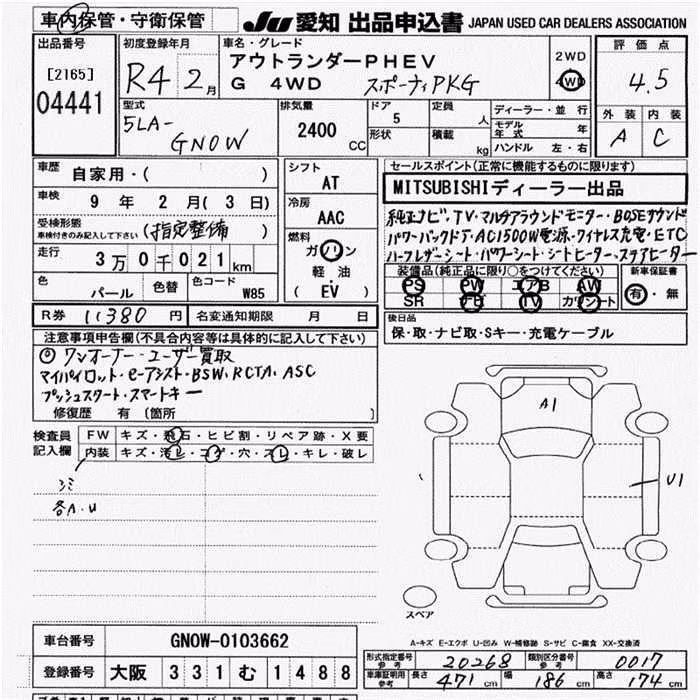 車内保管・守衛保管
JU 愛知 出品申込書 JAPAN USED CAR DEALERS ASSOCIATION
出品番号
[2165]
04441
初度登録年月
R4 2月
車名・グレード
アウトランダーPHEV
G 4WD スポーティPKG
2WD
4WD
評価点
4.5
外装 内装
A C
型式
5LA-
GN0W
排気量
2400 CC
ドア
5
形状
定員
人
積載
kg
ディーラー・並行
モデル年式 年
ハンドル 左・右
車歴
自家用・( )
車検
9年 2月(3日)
受検形態
車検付きのみ記入して下さい
(指定整備)
走行
3万0千021km
色
パール
色替
色コード
W85
シフト
AT
冷房
AAC
燃料
ガソリン
軽油
(EV)
セールスポイント(正常に機能するものに限ります)
MITSUBISHIディーラー出品
純正ナビ・TV・マルチアラウンドモニター・BOSEサウンド
パワーバックドア・AC1500W電源・ワイヤレス充電・ETC
ハーフレザーシート・パワーシート・シートヒーター・ステアヒーター
装備品(純正品に限り○をつけてください)
PS PW エアB AW
SR ナビ TV カワシート
新車保証書
有・無
R券 11380円
名変通知期限 月 日
後日品
保・取・ナビ取・Sキー・充電ケーブル
注意事項申告欄(不具合内容等は具体的に記入して下さい)
◎ワンオーナー・ユーザー買取
マイパイロット・e-アシスト・BSW・RCTA・ASC
プッシュスタート・スマートキー
修復歴 有 〔箇所 〕
検査員記入欄
FW キズ・飛石・ヒビ割・リペア跡・X要
内装 キズ・汚レ・コゲ・穴・スレ・キレ・破レ
シミ
各A.U
A1
U1
スペア
A-キズ E-エクボ U-凹み W-補修跡 S-サビ C-腐食 XX-交換済
車台番号 GN0W-0103662
登録番号 大阪 331む1488
形式指定番号 参考 20268
類別区分番号 参考 0017
車庫証明用 参考 長さ 471cm 幅 186cm 高さ 174cm